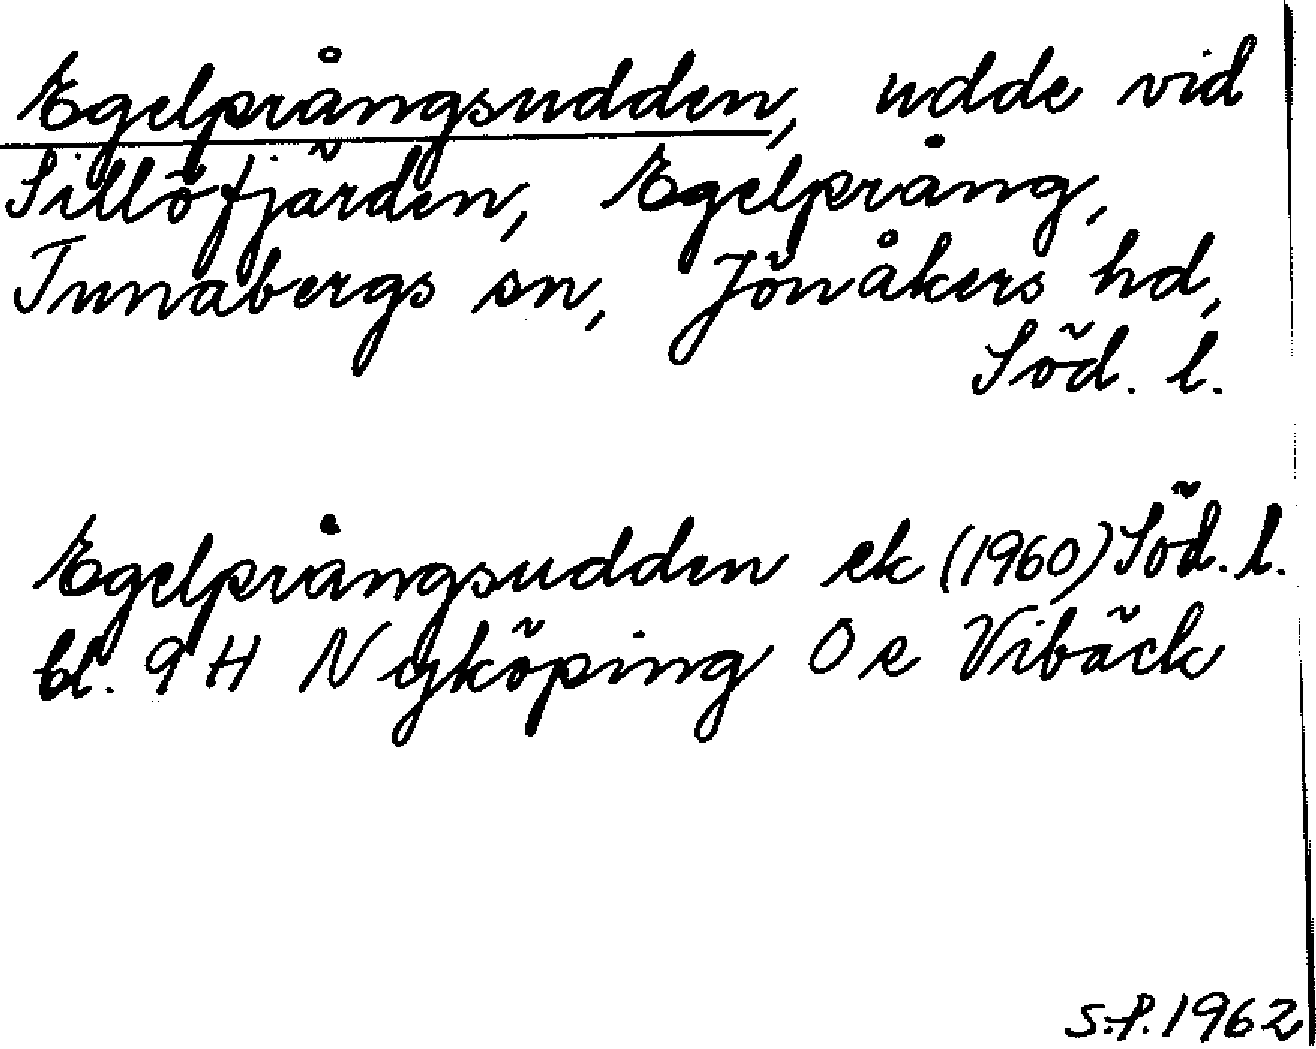 Egelprångsudden, udde vid
Sillöfjärden, Egelprång,
Tunabergs sn, Jönåkers hd,
Söd. l.
Egelprångsudden ek (1960) Söd. l.
bl. 9 H Nyköping O e Vibäck
S.P. 1962